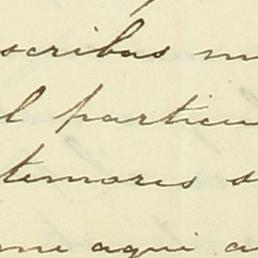 scribas m
l particu
temores s
me aqui a